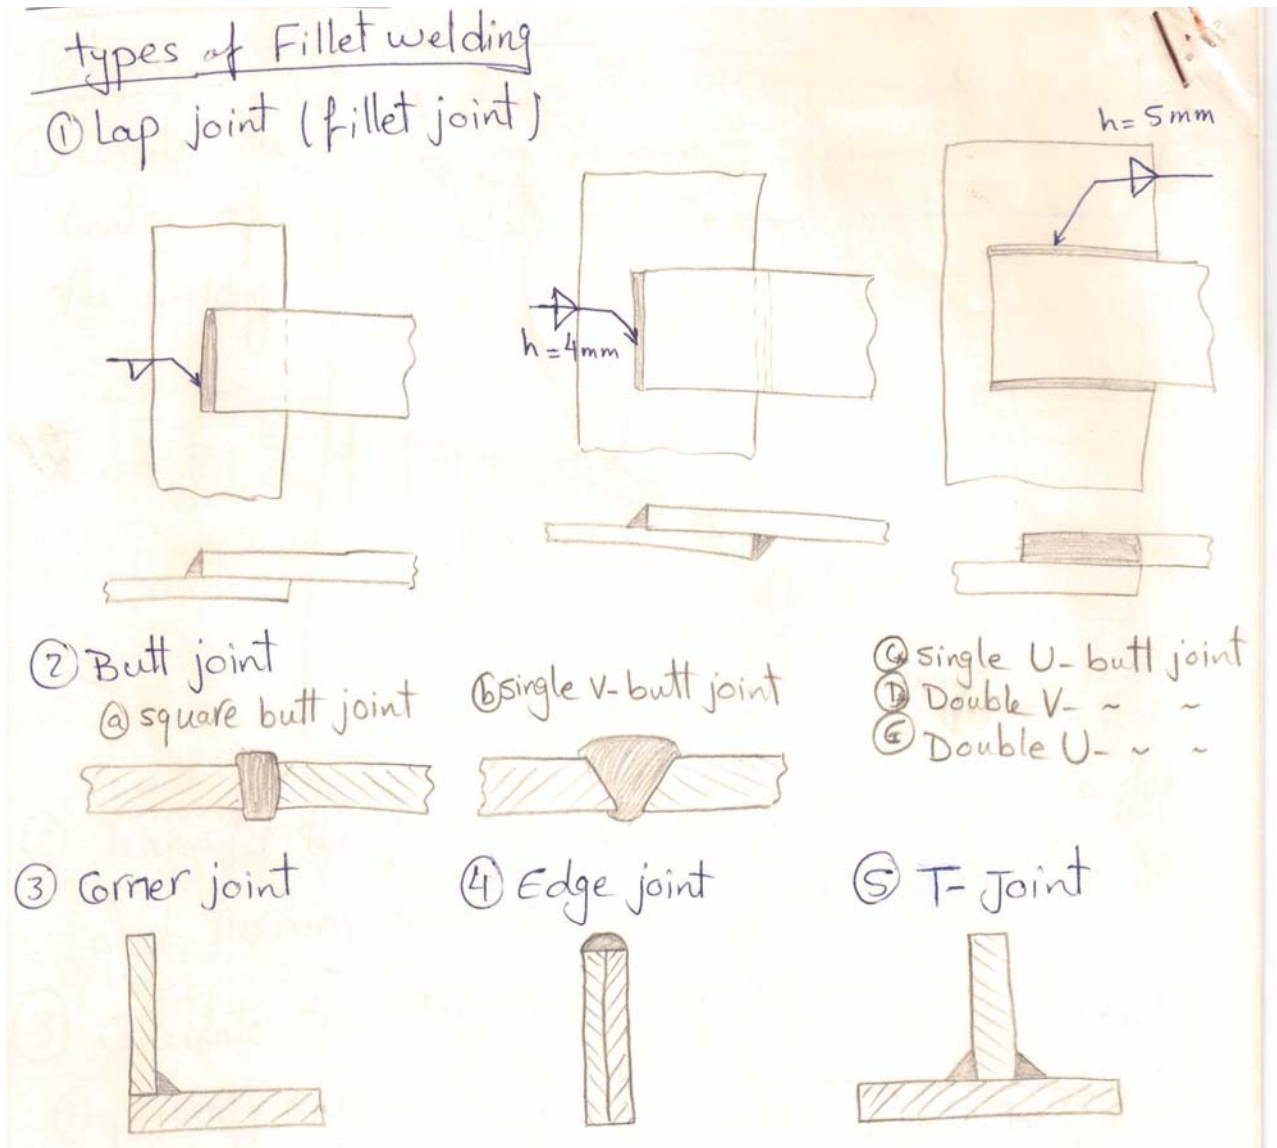 types of Fillet welding
① Lap joint (fillet joint)
h = 5 mm
h = 4 mm
② Butt joint
ⓐ square butt joint
ⓑ single V- butt joint
Ⓒ single U- butt joint
Ⓓ Double V- ~ ~
Ⓔ Double U- ~ ~
③ Corner joint
④ Edge joint
⑤ T- Joint